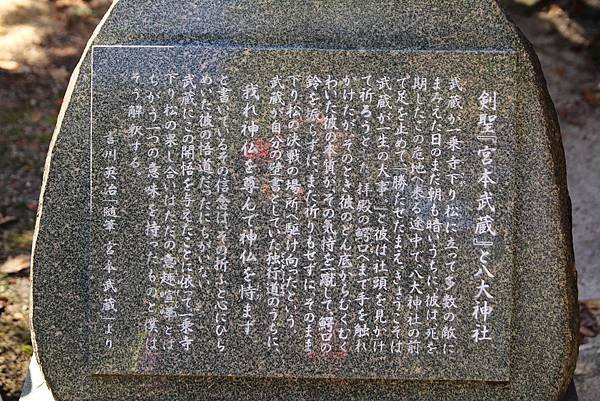 剣聖『宮本武蔵』と八大神社
武蔵が一乗寺下り松に立って多数の敵に
まみえた日のまだ朝も暗いうちに、彼は死を
期したこの危地へ来る途中で八大神社の前
で足を止めて、「勝たせたまえ。きょうこそは
武蔵が一生の大事。」と彼は社頭を見かけ
て祈ろうとした。拝殿の鰐口へまで手を触れ
かけたが、そのとき彼のどん底からむくむく
わいた彼の本質が、その気持を一蹴して、鰐口の
鈴を振らずに、また祈りもせずに、そのまま
下り松の決戦の場所へ駆け向ったという。
武蔵が自分の壁書としていた独行道のうちに、
我れ神仏を尊んで神仏を恃まず
と書いているその信念は、その折ふと心にひら
めいた彼の悟道だったにちがいない。
武蔵にこの開悟を与えたことに依て一乗寺
下り松の果し合いはただの意趣喧嘩とは
ちがう一つの意味を持ったものと僕は
そう解釈する。
吉川英治「随筆 宮本武蔵」より